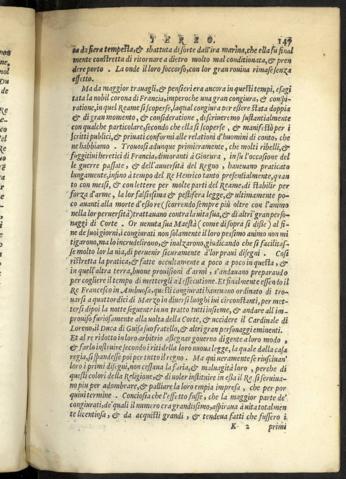 TERZO. 147
ta di fiera tempesta, & sbattuta di sorte dall'ira marina, che ella fu final
mente constretta di ritornare a dietro molto mal conditionata, & pren
dere porto. La onde il loro soccorso, con lor gran rouina rimase senza
effetto.
Ma da maggior trauagli, & pensieri era ancora in questi tempi, esagi
tata la nobil corona di Francia, imperoche una gran congiura, & conspi-
ratione, in quel Reame si scoperse, laqual congiura per essere stata dappia
& di gran momento, & consideratione, discriueremo sustantialmente
con qualche particolare, secondo che ella si scoperse, & manifestò per i
scritti publici, & priuati conformi alle relationi d'huomini di conto, che
ne habbiamo. Trouossi adunque primieramente, che molti ribelli, &
fuggitiui heretici di Francia, dimoranti à Gineura, in su l'occasione del
le guerre passate, & dell'auuersità del Regno, haueuano praticato
lungamente, insino à tempo del Re Henrico tanto presentialmente, quan
to con messi, & con lettere per molte parti del Reame, di stabilir per
forza d'arme, la lor falsissima & pestifera legge, & ultimamente po-
co auanti alla morte d'esso re (scorrendo sempre piu oltre con l'animo
nella lor peruersità) trattauano contra la uita sua, & di altri gran perso-
naggi di Corte. Or uenuta sua Maestà (come di sopra si disse) al fi-
ne de suoi giorni, i congiurati non solamente il loro pessimo animo non mi
tigarono, ma lo incrudelirono, & inalzarono, giudicando che si facilitas-
se molto lor la uia, di peruenir sicuramente a lor praui disegni. Così
ristretta la pratica, & fatte occultamente a poco a poco in questa, &
in quell'altra terra, buone prouisioni d'armi, s'andauano preparando
per cogliere il tempo di mettergli ad essecutione. Et finalmente essendo il
Re Francesco in Ambuosa, questi congiurati haueuano ordinato di tro-
uarsi a quattordici di Marzo in diuersi luoghi iui circonstanti, per met-
tersi dipoi la notte seguente in un tratto tutti insieme, & andare all'im-
prouiso furiosamente alla uolta della Corte, & uccidere il Cardinale di
Loreno, il Duca di Guisa suo fratello, & altri gran personaggi eminenti.
Et al re ridotto in loro arbitrio assegnar gouerno di gente a loro modo,
& farlo instruire secondo i riti della loro nuoua legge, la quale dalla casa
regia, si spandesse poi per tutto il regno. Ma qui ueramente se riusciuan'
loro i primi disegni, non cessaua la furia, & maluagità loro, perche di
questi colori della Religione, & di uoler instituire in essa il Re si seruiua-
no piu per adombrare, & palliare la loro empia impresa, che per por
quiui termine. Conciosia che l'effetto fusse, che la maggior parte de'
congiurati, de' quali il numero era grandissimo, aspiraua à uita totalmen
te licentiosa, & da acquisti grandi, & tendeua fatti che fussero i
K 2 primi